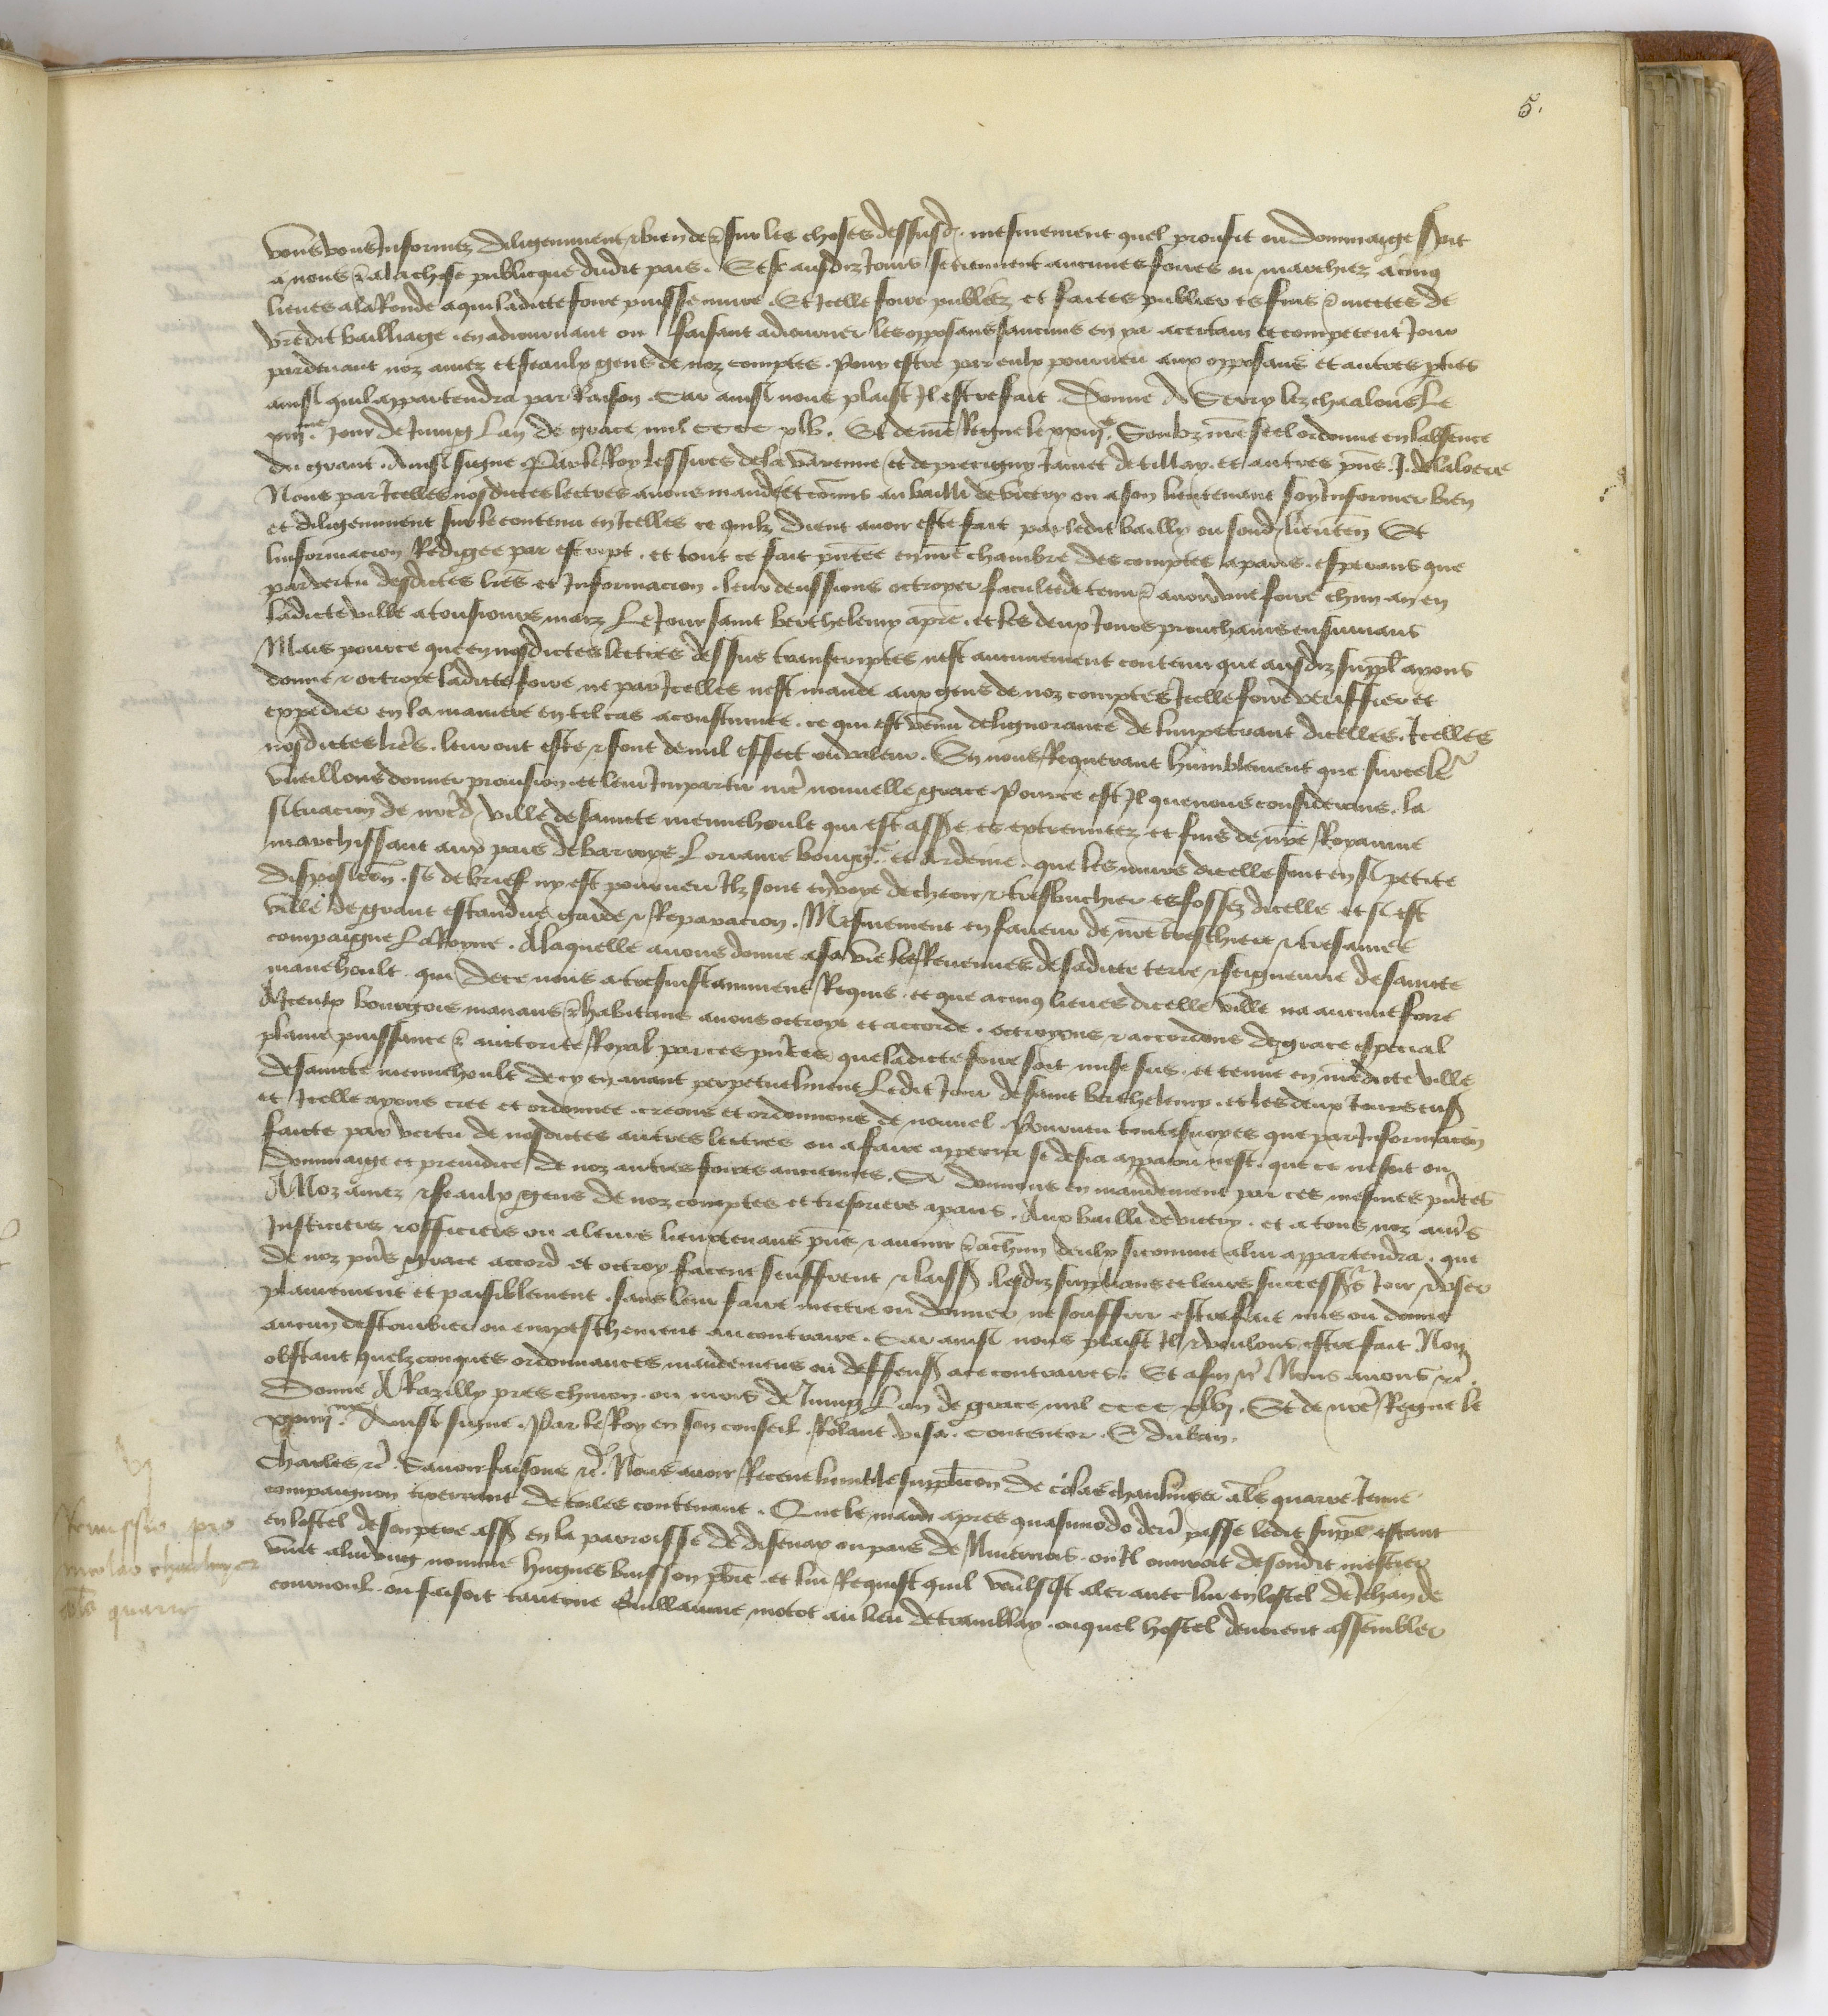 5.
vous vous Informez diligemment & bien de & sur les choses dessusd. mesmement quel proufit ou dommaige seroit
a nous & a la chose publicque dudit pais. Et se ausdiz Jours se tiennent aucunes foires ou marchiez a cinq
lieues a la Ronde a qui ladicte foire puisse nuire. Et Icelle foire publiez et faictes publier es fins & mectes de
vr̃edit bailliage. en adiournant ou faisant adiourner les opposans saucuns en ya a certain et competent Jour
pardeuant noz amez et feaulx gens de noz comptes. Pour estre par eulx pourueu aux opposans et autres pties
ainsi quil appartendra par Raison. Car ainsi nous plaist Il estre fait. Donne A Serry lez chaalons Le
xiiiJme Jour de Juing Lan de grace mil cccc xlv. Et de nr̃e Regne le xxiiJe. Soubz nr̃e seel ordonne en labsence
du grant. Ainsi signe. Par le Roy les sires de la varenne et de precigny Jamet de tillay. et autres pñs. J. de laloere
Nous par Icelles nosdictes lectres auons mande et cõmis au bailli de victry ou a son lieutenant soy Informer bien
et diligemment sur le contenu en Icelles ce quilz dient auoir este fait par ledit bailly ou sond. lieuten̄ Et
linformacion Redigee par escript. et tout ce fait pñtee en nr̃e chambre des comptes a paris. esperans que
par vertu desdictes lr̃es et Informacion. leur deussions octroyer faculte de tenir & auoir vne foire chũn an en
ladicte ville a tousiours mais Le Jour saint berthelemy apr̃e. et les deux Jours prouchains ensuiuans
Mais pource que en nosdictes lectres dessus transcriptes nest aucunement contenu que ausdiz suppl̃ ayons
donne & octroye ladicte foire, ne par Icelles nest mande aux gens de noz comptes Icelle foire veriffier et
expedier en la maniere en tel cas acoustumee. ce qui est venu de lignorance de limpetrant dicelles. Icelles
nosdictes lr̃es. leur ont este & sont de nul effect ou valeur. En nous Requerant humblement que sur ce le
vueillons donner prouision. et leur Impartir nr̃e nouuelle grace. Pource est Il que nous considerans. la
situacion de nr̃ed. ville de saincte menehoult qui est assise es extremitez et fins de nr̃e Royaume
marchissant aux pais de barroys Lorraine bourgg̃ et Ardeñe. que les murs dicelle sont en si petite
disposicõn. se de brief ny est pourueu Ilz sont en voye de cheoir & tresbuchier es fossez dicelle et si est
ville de grant estandue garde & Reparacion. Mesmement en faueur de nr̃e treschiere & tresamee
compaigne La Royne. A laquelle auons donne a sa vie les Reuenues de sadicte terre & seigneurie de saincte
manehoult. qui de ce nous a tresinstamment Requis. et que a cinq lieues dicelle ville na aucune foire
A Iceulx bourgois manans & habitans auons octroye et accorde. octroyons & accordons de grace especial
plaine puissance & auctorite Royal par ces pñtes que ladicte foire soit mise sus. et tenue en nr̃edicte ville
de saincte menehoult decy en auant perpetuelment Ledit Jour de saint berthelemy. et les deux Jours ens
et Icelle ayons cree et ordonnee. creons et ordonnons de nouuel. Pourueu toutesuoyes que par Informacõn
faicte par vertu de nosdictes autres lectres ou a faire apperra se desia apparu nest. que ce ne soit ou
dommaige et preiudice de noz autres foires anciennes. Si donnons en mandement par ces mesmes pñtes
A Noz amez & feaulx gens de noz comptes et tresoriers a paris. Aux bailli de victry. et a tous noz autr̃s
Justiciers & officiers ou a leurs lieuxtenans pñs & auenir & a chũn deulx si comme a lui appartendra. que
de noz pñs grace accord et octroy facent seuffrent & laissẽ lesdiz supplians et leurs successrs̃ Joir & vser
plainement et paisiblement. sans leur faire mectre ou donner ne souffrir estre fait mis ou donne
aucun destourbier ou empeschement au contraire. Car ainsi nous plaist Il & voulons estre fait Non
obstant quelzconques ordonnances mandemens ou deffenses a ce contraires. Et afin &c̃ Nous auons &c̃.
Donne A Razilly pres chinon. ou mois de Juing Lan de grace mil cccc xlvj. Et de nr̃e Regne le
xxiiiJme. Ainsi signe. Par le Roy en son conseil. Rolant visa. contentor. E duban.
Charles &c̃. Sauoir faisons &c̃. Nous auoir Receue lumble supplicõn de colas chaulmyer al̃s quarre Jeune
compaignon tixerrant de toiles contenant. Que le mardi apres quasimodo derr̃ passe ledit suppl̃ estant
en lostel de son pere assis en la parroisse de disenay ou pais de Niuernois. ou Il ouuroit de sondit mestier
vint a lui vng nomme hugues buisson pbr̃e et lui Requist quil voulsist aler auec lui en lostel de Jehan de
cournoul. ou faisoit tauerne Guillaume motot au lieu de tramblay. ouquel hostel deuoient assembler
Remissio pro
nicolao chaulmyer
al̃s quarre